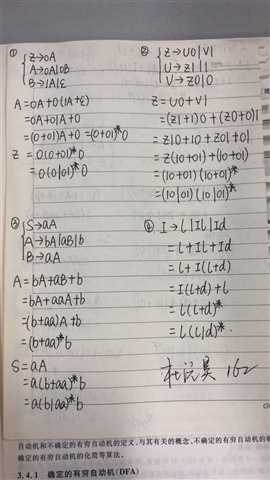 ① { Z→0A
A→0A|0B
B→1A|ε
A=0A+0(1A+ε)
=0A+01A+0
=(0+01)A+0=(0+01)*0
Z=0(0+01)*0
=0(0|01)*0
② { Z→U0|V1
U→Z1|1
V→Z0|0
Z=U0+V1
=(Z1+1)0+(Z0+0)1
=Z10+10+Z01+01
=Z(10+01)+(10+01)
=(10+01)(10+01)*
=(10|01)(10|01)*
③ { S→aA
A→bA|aB|b
B→aA
A=bA+aB+b
=bA+aaA+b
=(b+aa)A+b
=(b+aa)*b
S=aA
=a(b+aa)*b
=a(b|aa)*b
④ I→l|Il|Id
=l+Il+Id
=l+I(l+d)
=I(l+d)+l
=l(l+d)*
=l(l|d)*.
162
自动机和不确定的有穷自动机的定义、与其有关的概念、不确定的有穷自动机的确
确定的有穷自动机的化简等算法。
3.4.1 确定的有穷自动机(DFA)